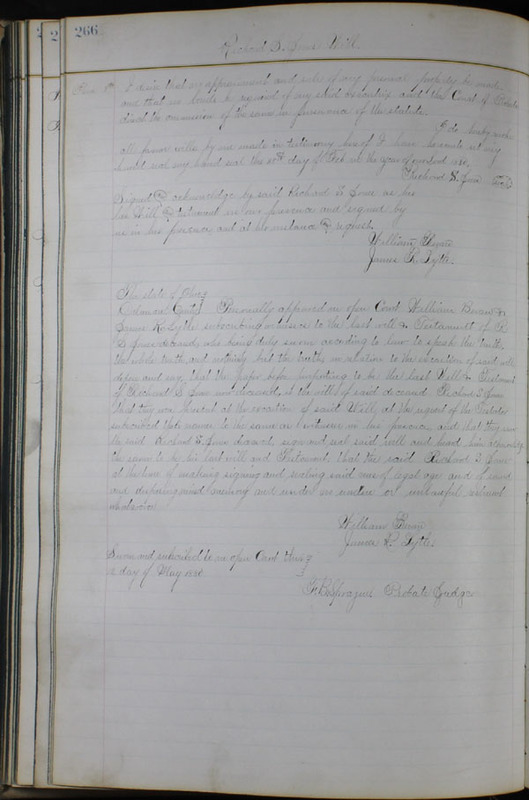 266
Richard S. Will
I desire that no appraisment and sale of my personal property be made
and that no bonds be required of my said executrix and the Court of Probate
direct the ommission of the same in pursuance of the statute.
I do hereby revoke
all former wills by me made in testimony hereof I have hereunto set my
hand and my hand seal the day of Feb in the year of our Lord
Richard S. Seal
Signed & acknowledge by said Richard S. as his
last Will & testament in our presence and signed by
us in his presence and at his instance & request.
William
James R. Lytle.
The State of Ohio
County Personally appeared in open Court William &
James R. Lytle subscribing witnesses to the last will & Testament of R.
S. deceased, who being duly sworn according to law to speak the truth,
the whole truth, and nothing but the truth, in relation to the execution of said will
depose and say, that the paper before purporting to be the last Will & Testament
of Richard S. now deceased, is the will of said deceased Richard S.
that they were present at the execution of said Will, at the request of the Testator
subscribed their names to the same as witnesses in his presence and that they saw
the said Richard S. sign and seal said will and heard him acknowledge
the same to be his last will and Testament, that the said Richard S.
at the time of making signing and sealing said was of legal age and of sound
and disposing mind memory and under no undue or unlawful restraint
whatsoever
William
James R. Lytle.
Sworn and subscribed to in open Court this
2 day of May
Probate Judge